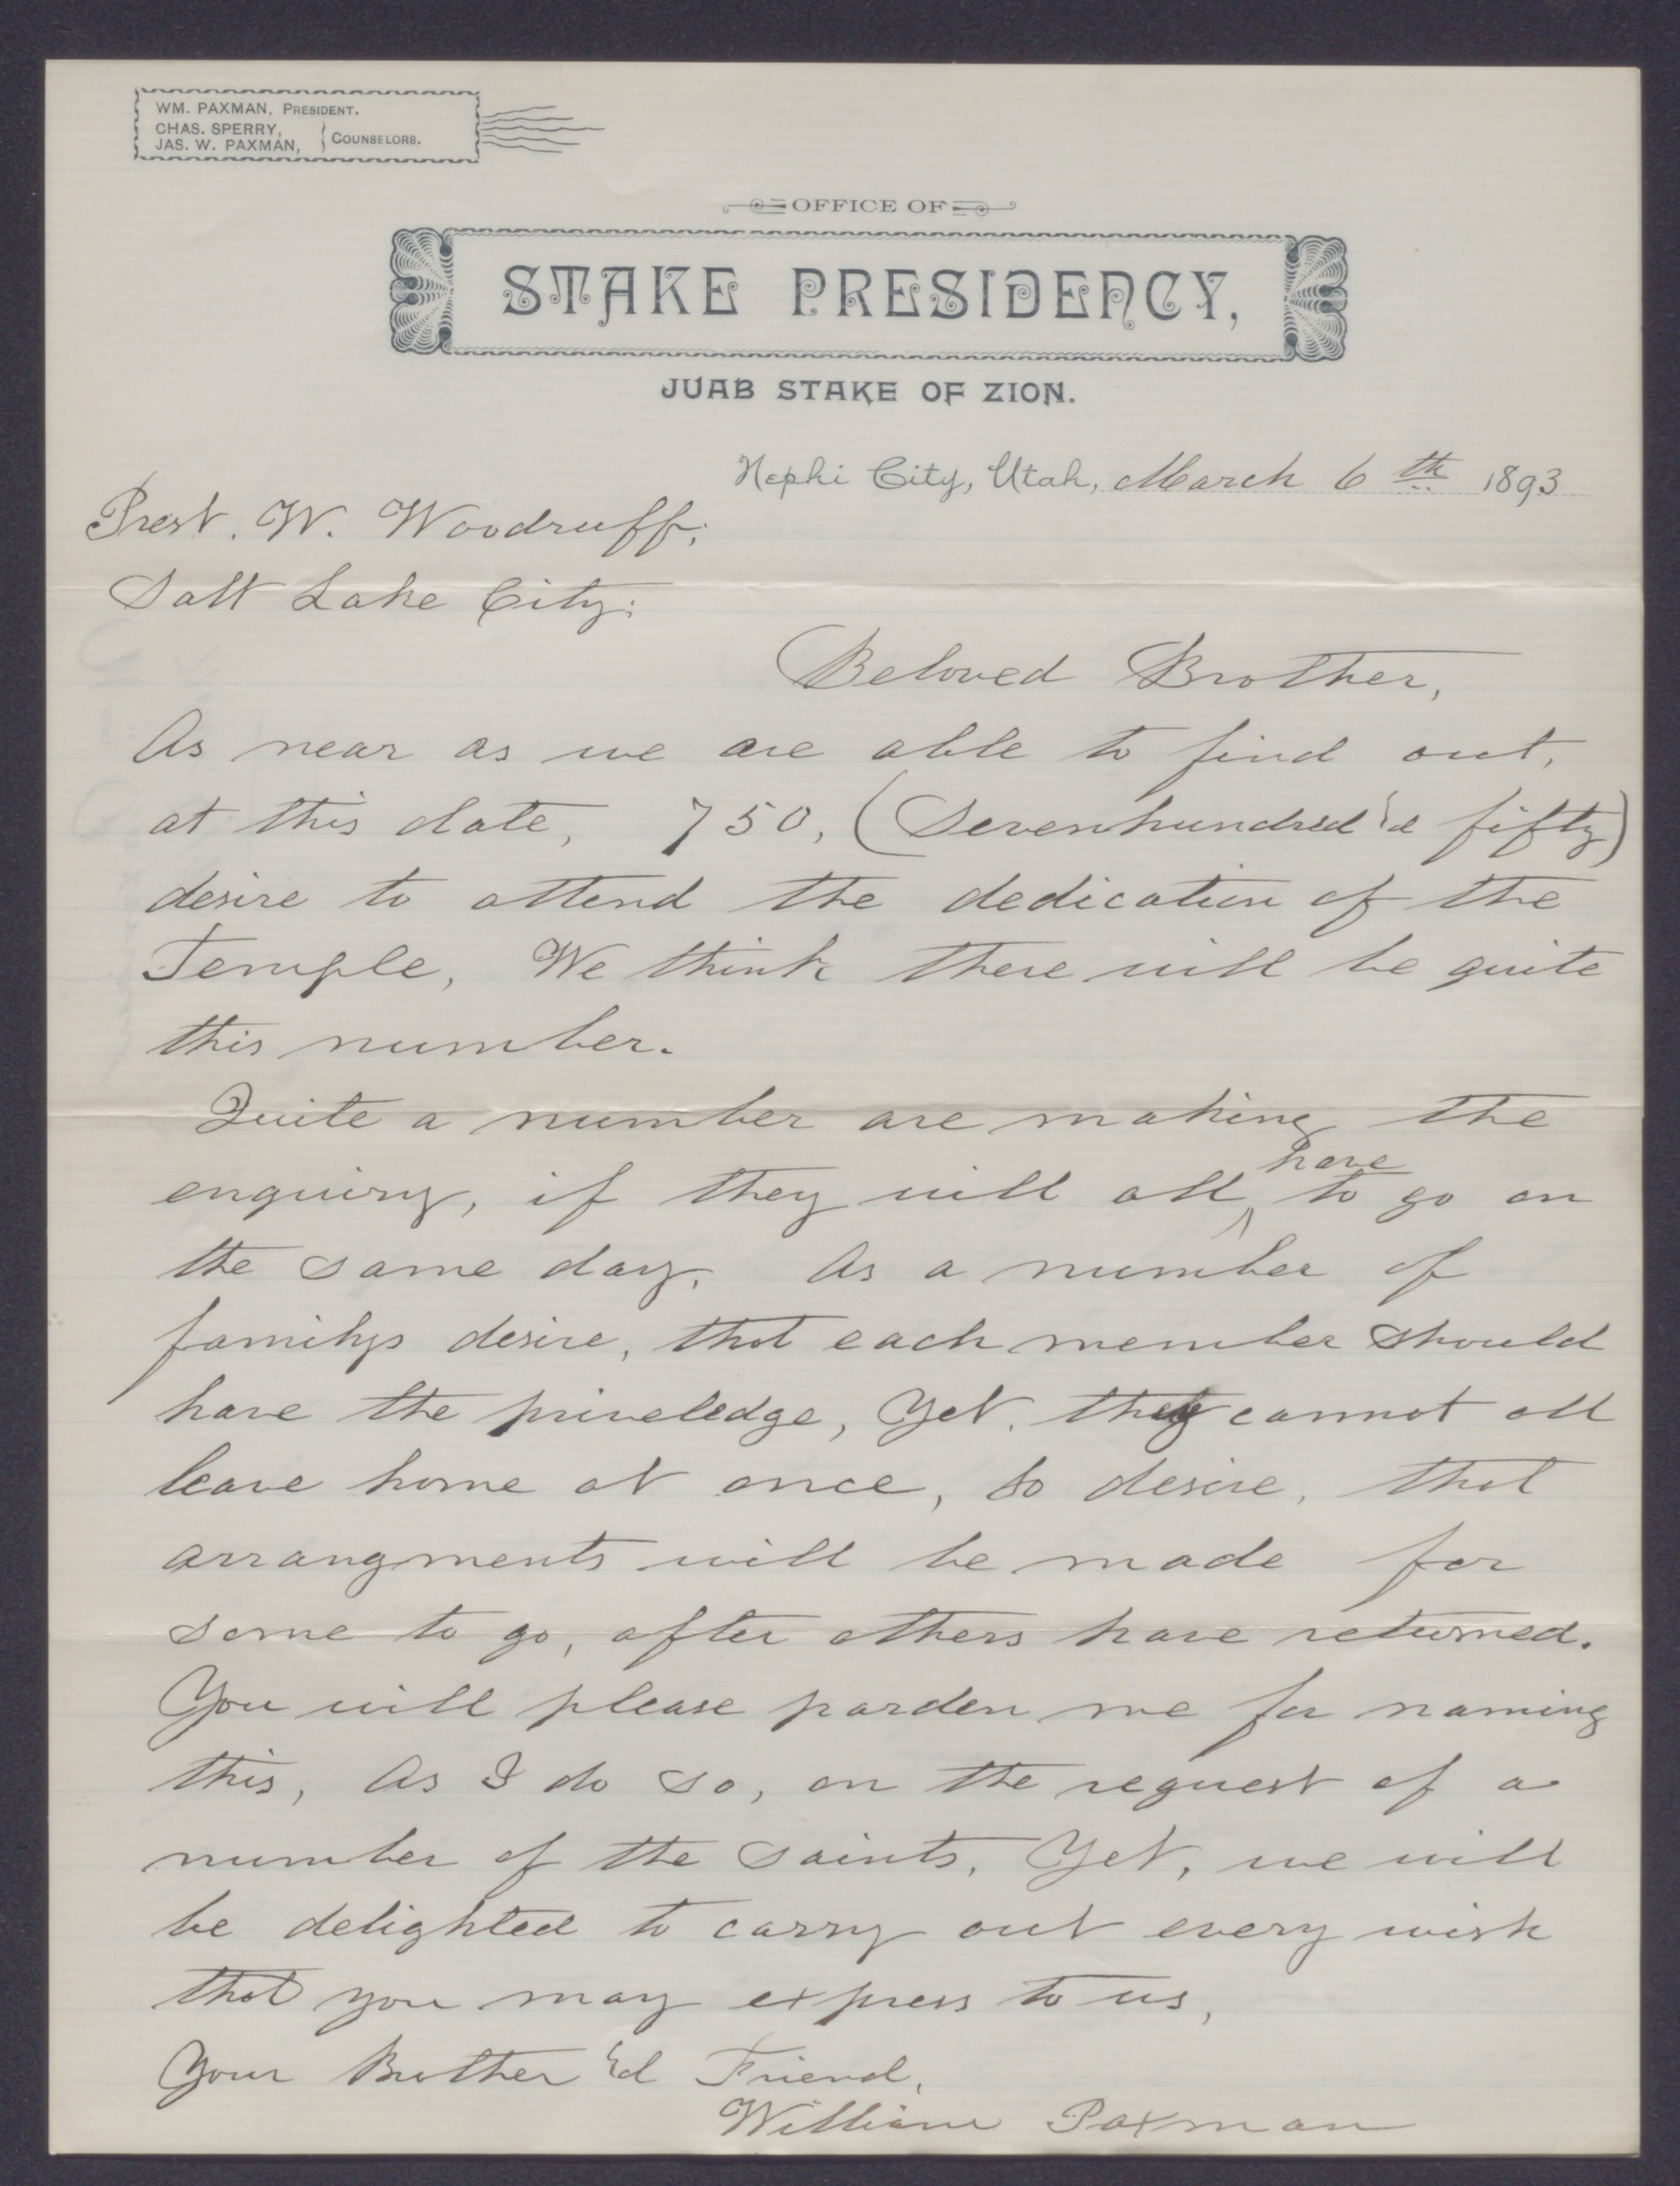 WM. PAXMAN, PRESIDENT.
CHAS. SPERRY,
JAS. W. PAXMAN, } COUNSELORS.
OFFICE OF
STAKE PRESIDENCY,
JUAB STAKE OF ZION.
Nephi City, Utah, March 6th 1893
Prest. W. Woodruff;
Salt Lake City:
Beloved Brother,
As near as we are able to find out,
at this date, 750, (Sevenhundred & fifty)
desire to attend the dedication of the
Temple, We think there will be quite
this number.
Quite a number are making the
enquiry, if they will all have to go on
the same day. As a number of
familys desire, that each member should
have the priveledge, Yet. they cannot all
leave home at once, so desire, that
arrangments will be made for
some to go, after others have returned.
You will please parden me for naming
this, As I do so, on the request of a
number of the Saints, Yet, we will
be delighted to carry out every wish
that you may express to us,
Your Brother & Friend,
William Paxman